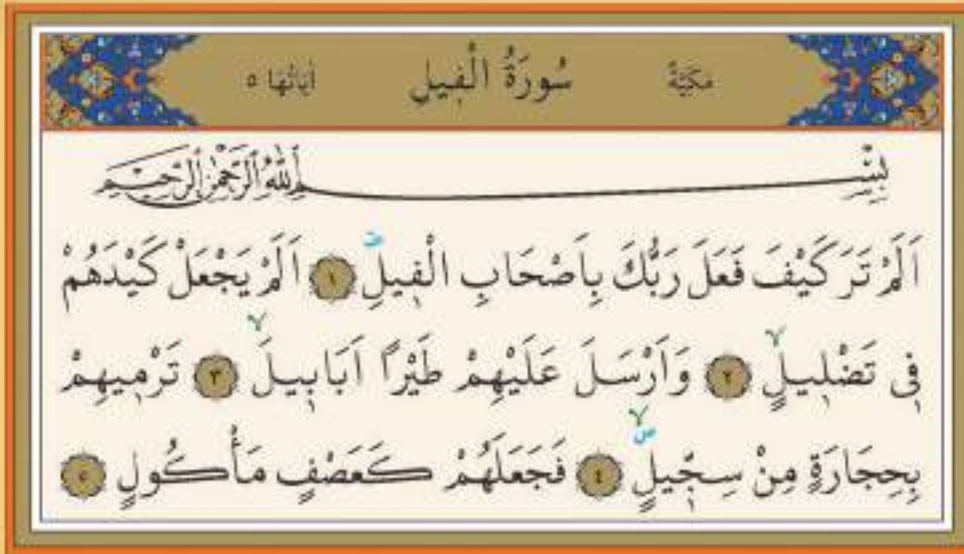 مَكِّيَّةٌ سُورَةُ الْفٖيلِ اٰيَاتُهَا ٥
بِسْمِ اللّٰهِ الرَّحْمٰنِ الرَّحٖيمِ
اَلَمْ تَرَ كَيْفَ فَعَلَ رَبُّكَ بِاَصْحَابِ الْفٖيلِؕ ١ اَلَمْ يَجْعَلْ كَيْدَهُمْ
فٖى تَضْلٖيلٍۙ ٢ وَاَرْسَلَ عَلَيْهِمْ طَيْرًا اَبَابٖيلَۙ ٣ تَرْمٖيهِمْ
بِحِجَارَةٍ مِنْ سِجّٖيلٍۙۖ ٤ فَجَعَلَهُمْ كَعَصْفٍ مَأْكُولٍ ٥